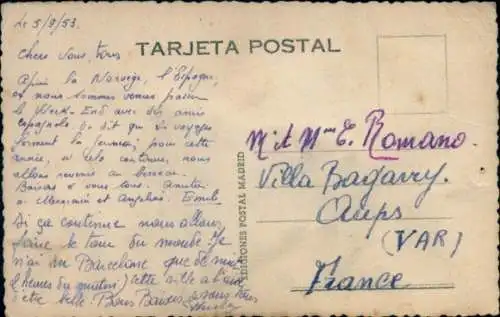 Le 5/9/53.
Chers vous tous
TARJETA POSTAL
Après la Norvège, l'Espagne,
et nous sommes venus passer
le Week-End avec des amis
espagnols. On dit que les voyages
forment la jeunesse, pour cette
année, si cela continue, nous
allons revenir au berceau.
Baisers à vous tous. Amitiés
à et Angeline. Emile
Si ça continue nous allons
faire le tour du monde! Je
n'ai vu Barcelone que de nuit
(heures du matin) cette ville a l'air
d'être belle Bons Baisers à vous tous
EDICIONES POSTAL MADRID
M. et Mme E. Romano.
Villa Bagarry.
Aups
(VAR)
France